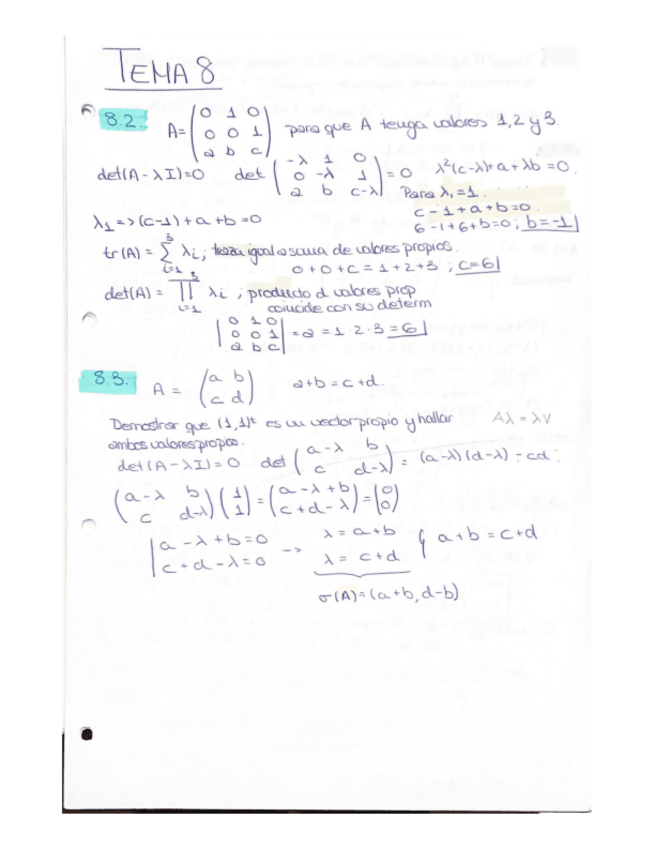 TEMA 8
8.2. A = ( 0 1 0 / 0 0 1 / a b c ) para que A tenga valores 1, 2 y 3.
det(A - λI) = 0 det ( -λ 1 0 / 0 -λ 1 / a b c-λ ) = 0 λ²(c-λ) + a + λb = 0.
Para λ₁ = 1.
λ₁ => (c-1) + a + b = 0 c - 1 + a + b = 0.
6 - 1 + 6 + b = 0; b = -1
tr(A) = Σ λi; traza igual a suma de valores propios.
i=1 3
0 + 0 + c = 1 + 2 + 3; c = 6
det(A) = Π λi; producto d valores prop
i=1 3
coincide con su determ
| 0 1 0 / 0 0 1 / a b c | = a = 1 · 2 · 3 = 6
8.3. A = ( a b / c d ) a + b = c + d.
Demostrar que (1,1)ᵗ es un vector propio y hallar Aλ = λv
ambos valores propios.
det(A - λI) = 0 det ( a-λ b / c d-λ ) = (a-λ)(d-λ) - cd;
( a-λ b / c d-λ ) ( 1 / 1 ) = ( a-λ+b / c+d-λ ) = ( 0 / 0 )
| a - λ + b = 0 -> λ = a + b { a + b = c + d
| c + d - λ = 0 λ = c + d
σ(A) = (a+b, d-b)